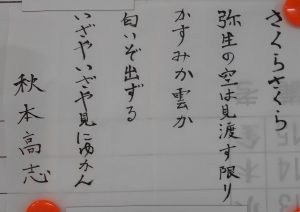 さくらさくら
弥生の空は見渡す限り
かすみか雲か
匂いぞ出ずる
いざやいざや見にゆかん
秋本高志